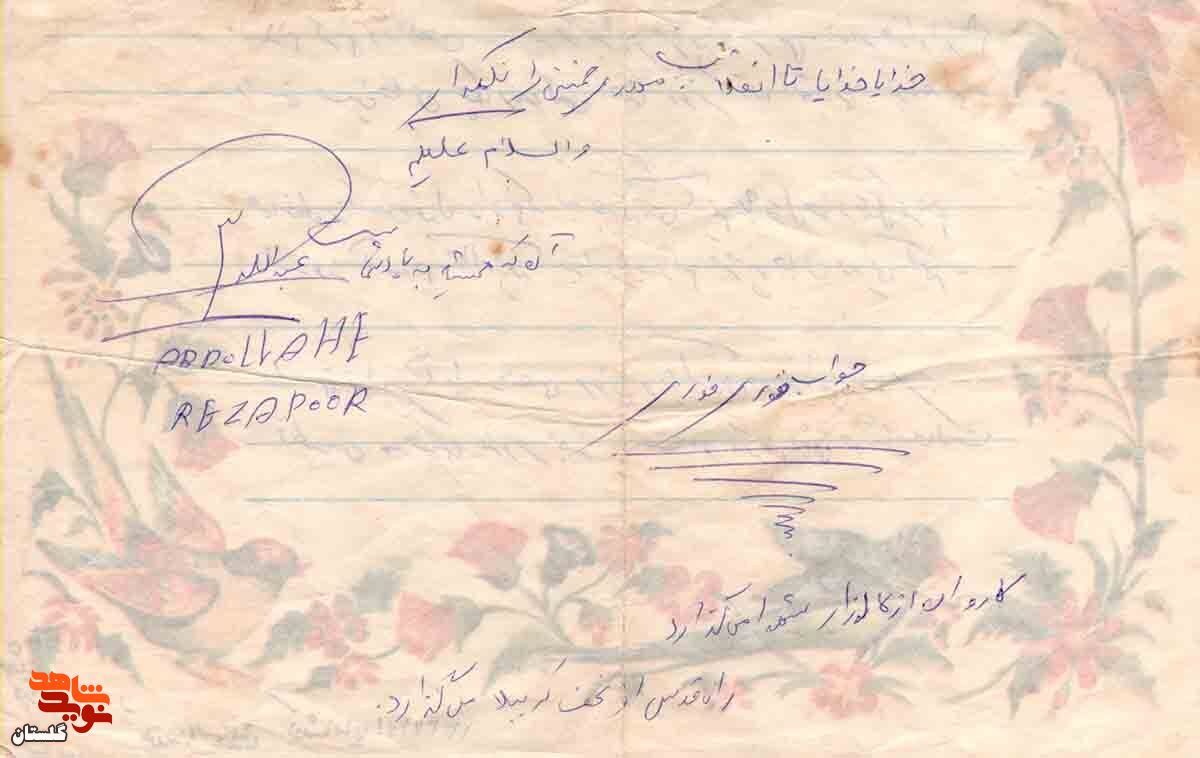 خدایا خدایا تا انقلاب مهدی خمینی را نگهدار
والسلام علیکم
آن که همیشه به یادتست عبدالله
ABDOLLAHE
REZAPOOR
جواب فوری فوری
کاروان از کارزار شهدا می‌گذارد
راه قدس از نجف کربلا می گذارد.
نوید شاهد
گلستان